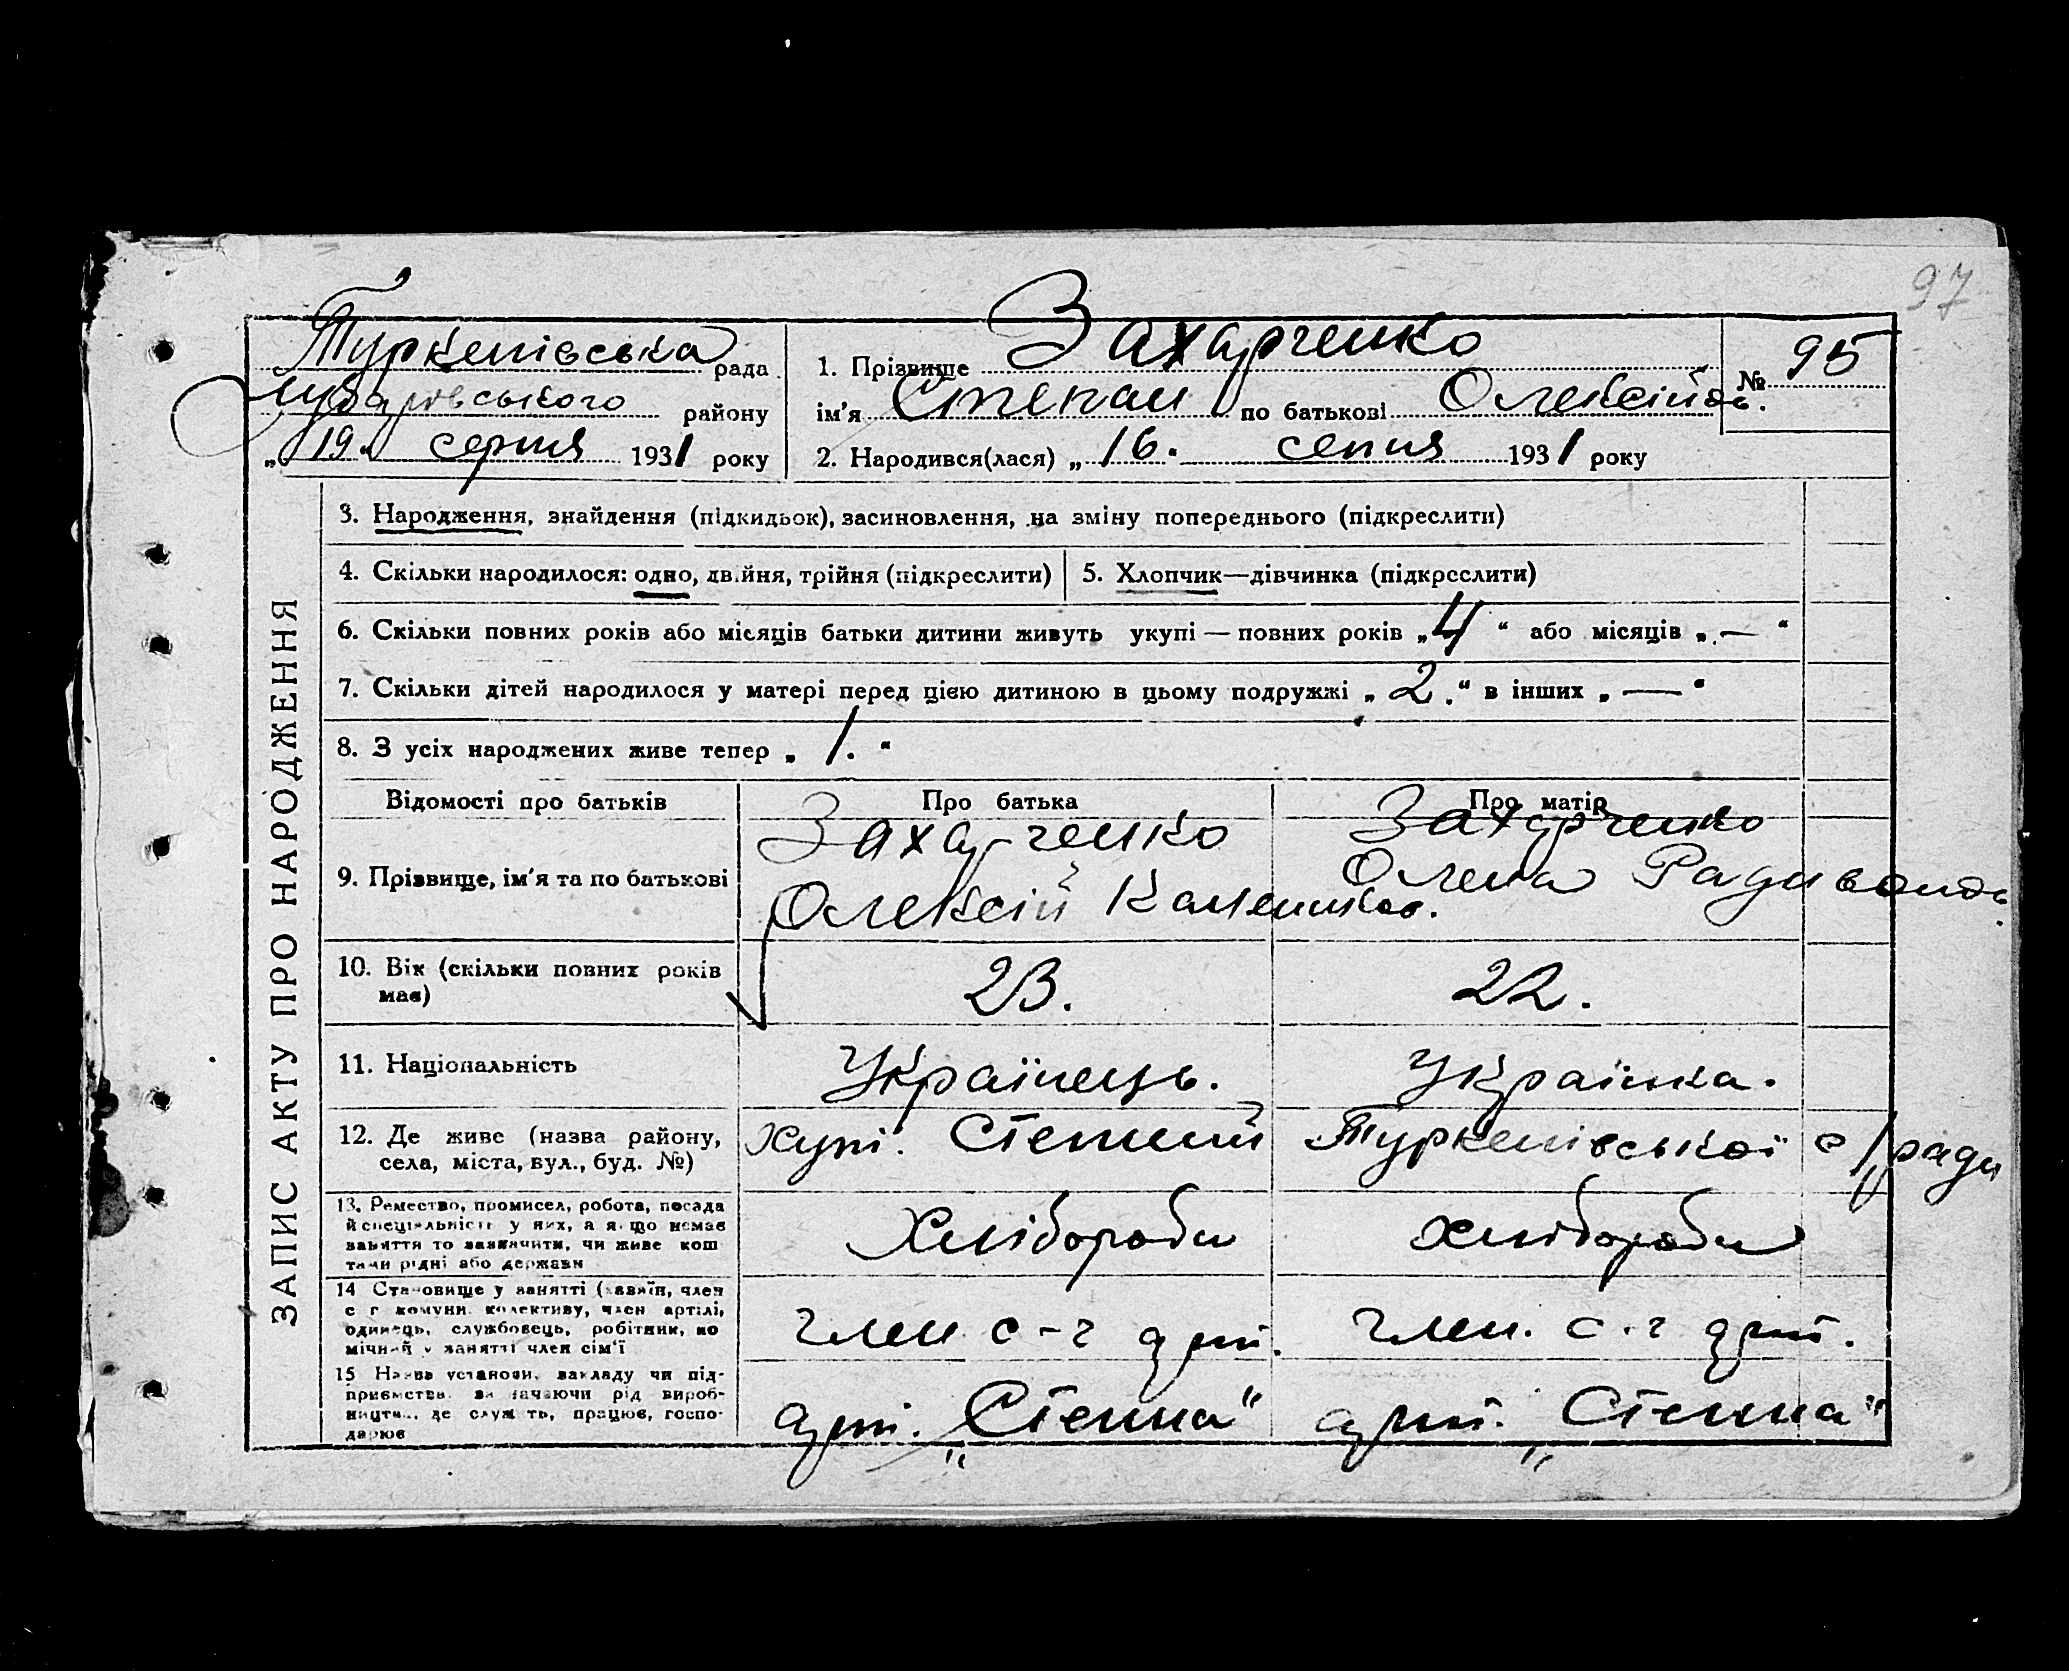 97
Туркенівська рада
району
„19“ серпня 1931 року
1. Прізвище Захарченко
ім'я Степан по батькові Олексійов.
№ 95
2. Народився(лася) „16“ сепня 1931 року
ЗАПИС АКТУ ПРО НАРОДЖЕННЯ
3. Народження, знайдення (підкидьок), засиновлення, на зміну попереднього (підкреслити)
4. Скільки народилося: одно, двійня, трійня (підкреслити)
5. Хлопчик—дівчинка (підкреслити)
6. Скільки повних років або місяців батьки дитини живуть укупі — повних років „4“ або місяців „—“
7. Скільки дітей народилося у матері перед цією дитиною в цьому подружжі „2.“ в інших „—“
8. З усіх народжених живе тепер „1.“
Відомості про батьків
Про батька
Про матір
9. Прізвище, ім'я та по батькові
Захарченко
Олексій
Захарченко
Олена
10. Вік (скільки повних років
має)
23.
22.
11. Національність
Українець.
Українка.
12. Де живе (назва району,
села, міста, вул., буд. №)
хут. Степний Туркенівської с/ради
13. Ремество, промисел, робота, посада
й спеціяльність у них, а якщо немає
заняття то зазначити, чи живе кош
тами рідні або держави
Хлібороби
хлібороби
14 Становище у занятті (хазяїн, член
с г комуни, колективу, член артілі,
одинець, службовець, робітник, по
мічний у занятті член сім'ї
член с-г арт.
член. с-г арт.
15 Назва установи, закладу чи під-
приємства, зазначаючи рід вироб-
ництва, де служить, працює, госпо-
дарює
арт. „Степна“
арт. „Степна“